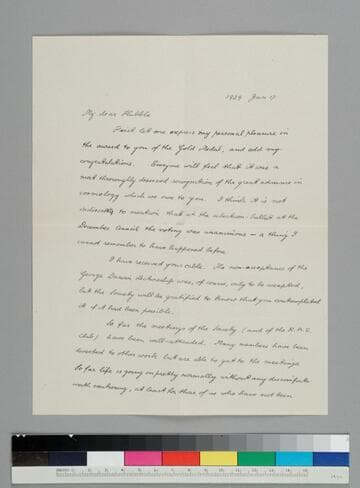 1939 Jan 17
My dear Hubble
First let me express my personal pleasure in
the award to you of the Gold Medal, and add my
congratulations. Everyone will feel that it was a
most thoroughly deserved recognition of the great advances in
cosmology which we owe to you. I think it is not
indiscreet to mention that at the election-ballot at the
December Council the voting was unanimous — a thing I
cannot remember to have happened before.
I have received your cable. The non-acceptance of the
George Darwin Lectureship was, of course, only to be accepted,
but the Society will be gratified to know that you contemplated
it if it had been possible.
So far the meetings of the Society (and of the R.A.S.
club) have been well-attended. Many members have been
diverted to other work but are able to get to the meetings.
So far life is going on pretty normally without any discomforts
worth mentioning, at least for those of us who have not been